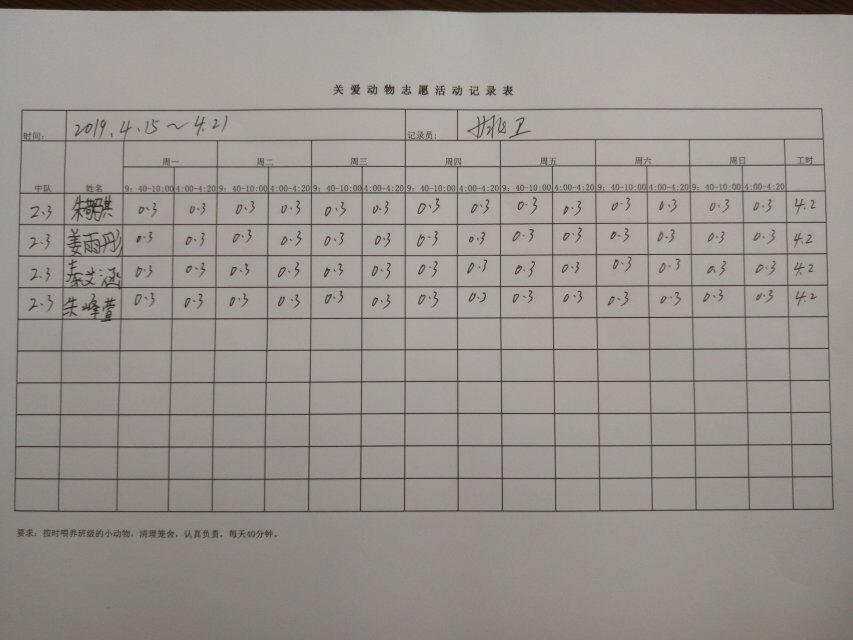 关爱动物志愿活动记录表
时间: 2019.4.15～4.21 记录员:
周一 周二 周三 周四 周五 周六 周日 工时
中队 姓名 9：40-10:00 4:00-4:20 9：40-10:00 4:00-4:20 9：40-10:00 4:00-4:20 9：40-10:00 4:00-4:20 9：40-10:00 4:00-4:20 9：40-10:00 4:00-4:20 9：40-10:00 4:00-4:20
2.3 朱 0.3 0.3 0.3 0.3 0.3 0.3 0.3 0.3 0.3 0.3 0.3 0.3 0.3 0.3 4.2
2.3 姜雨彤 0.3 0.3 0.3 0.3 0.3 0.3 0.3 0.3 0.3 0.3 0.3 0.3 0.3 0.3 4.2
2.3 秦艾涵 0.3 0.3 0.3 0.3 0.3 0.3 0.3 0.3 0.3 0.3 0.3 0.3 0.3 0.3 4.2
2.3 朱峰萱 0.3 0.3 0.3 0.3 0.3 0.3 0.3 0.3 0.3 0.3 0.3 0.3 0.3 0.3 4.2
要求：按时喂养班级的小动物，清理笼舍，认真负责，每天40分钟。